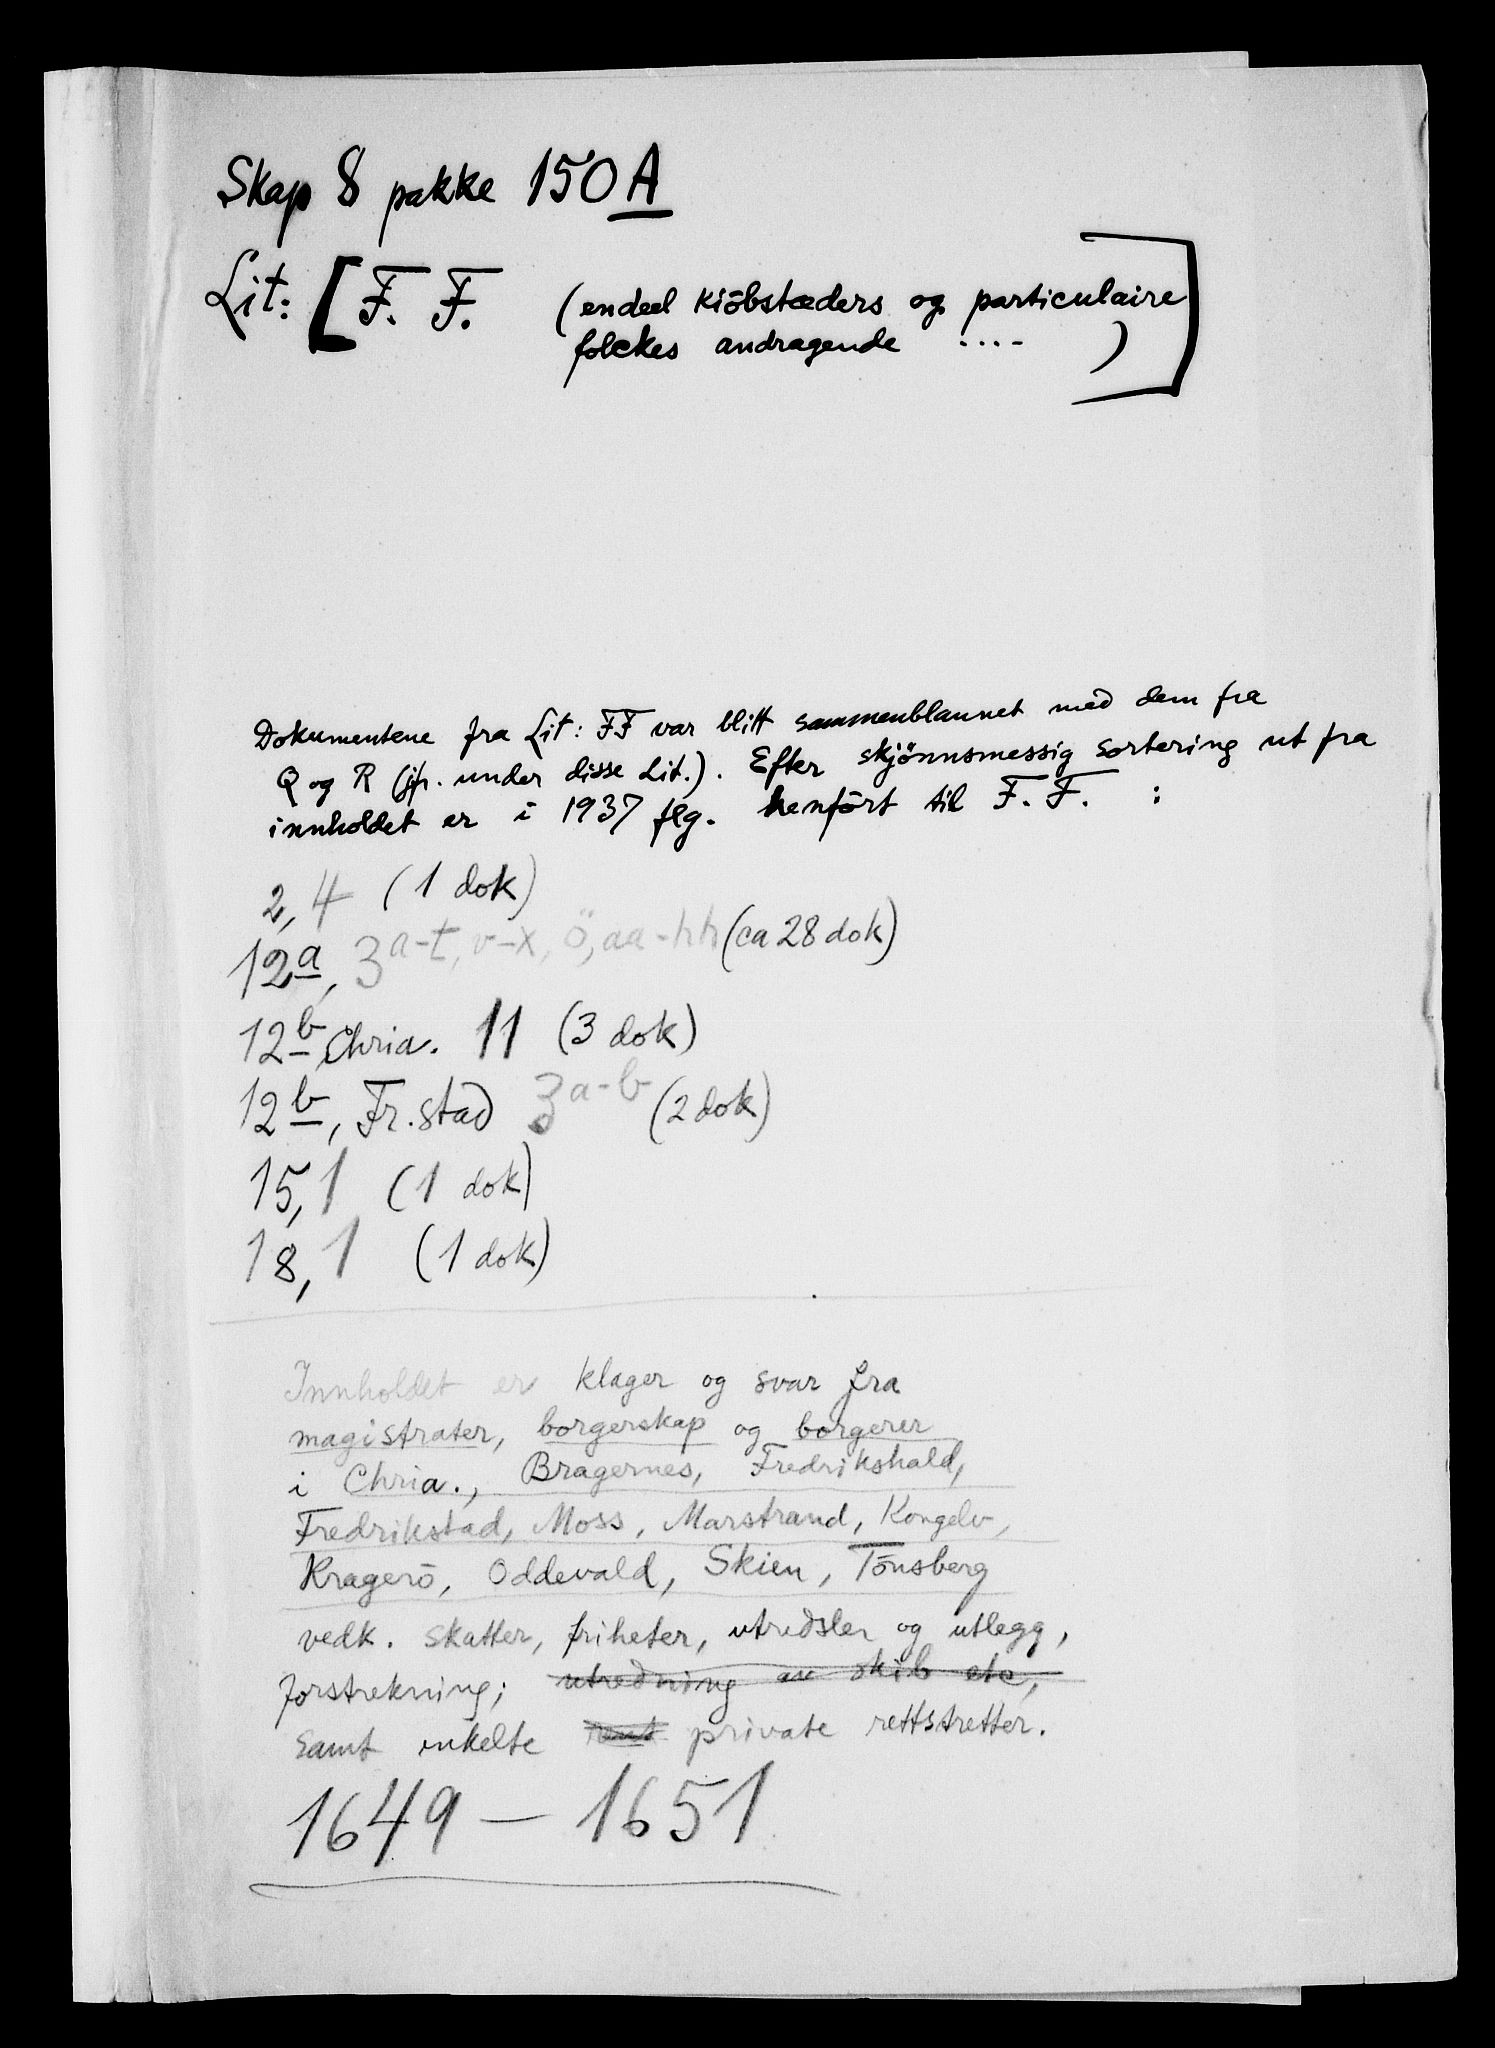 Skap 8 pakke 150A
Lit: [F. F. (endeel kiöbstæders og particulaire
folckes andragende .... )]
Dokumentene fra Lit: FF var blitt sammenblannet med dem fra
Q og R (jfr. under disse Lit.). Efter skjönnsmessig sortering ut fra
innholdet er i 1937 flg. henfört til F. F. :
2, 4 (1 dok)
12a, 3 a-t, v-x, ö, aa-hh (ca 28 dok)
12b, Chria. 11 (3 dok)
12b, Fr.stad 3 a-b (2 dok)
15, 1 (1 dok)
18, 1 (1 dok)
Innholdet er klager og svar fra
magistrater, borgerskap og borgerer
i Chria., Bragernes, Fredrikshald,
Fredrikstad, Moss, Marstrand, Kongelv,
Kragerö, Oddevald, Skien, Tönsberg
vedk. skatter, friheter, utredsler og utlegg,
forstrekning; utredning av skib etc,
samt enkelte private rettstretter.
1649 — 1651